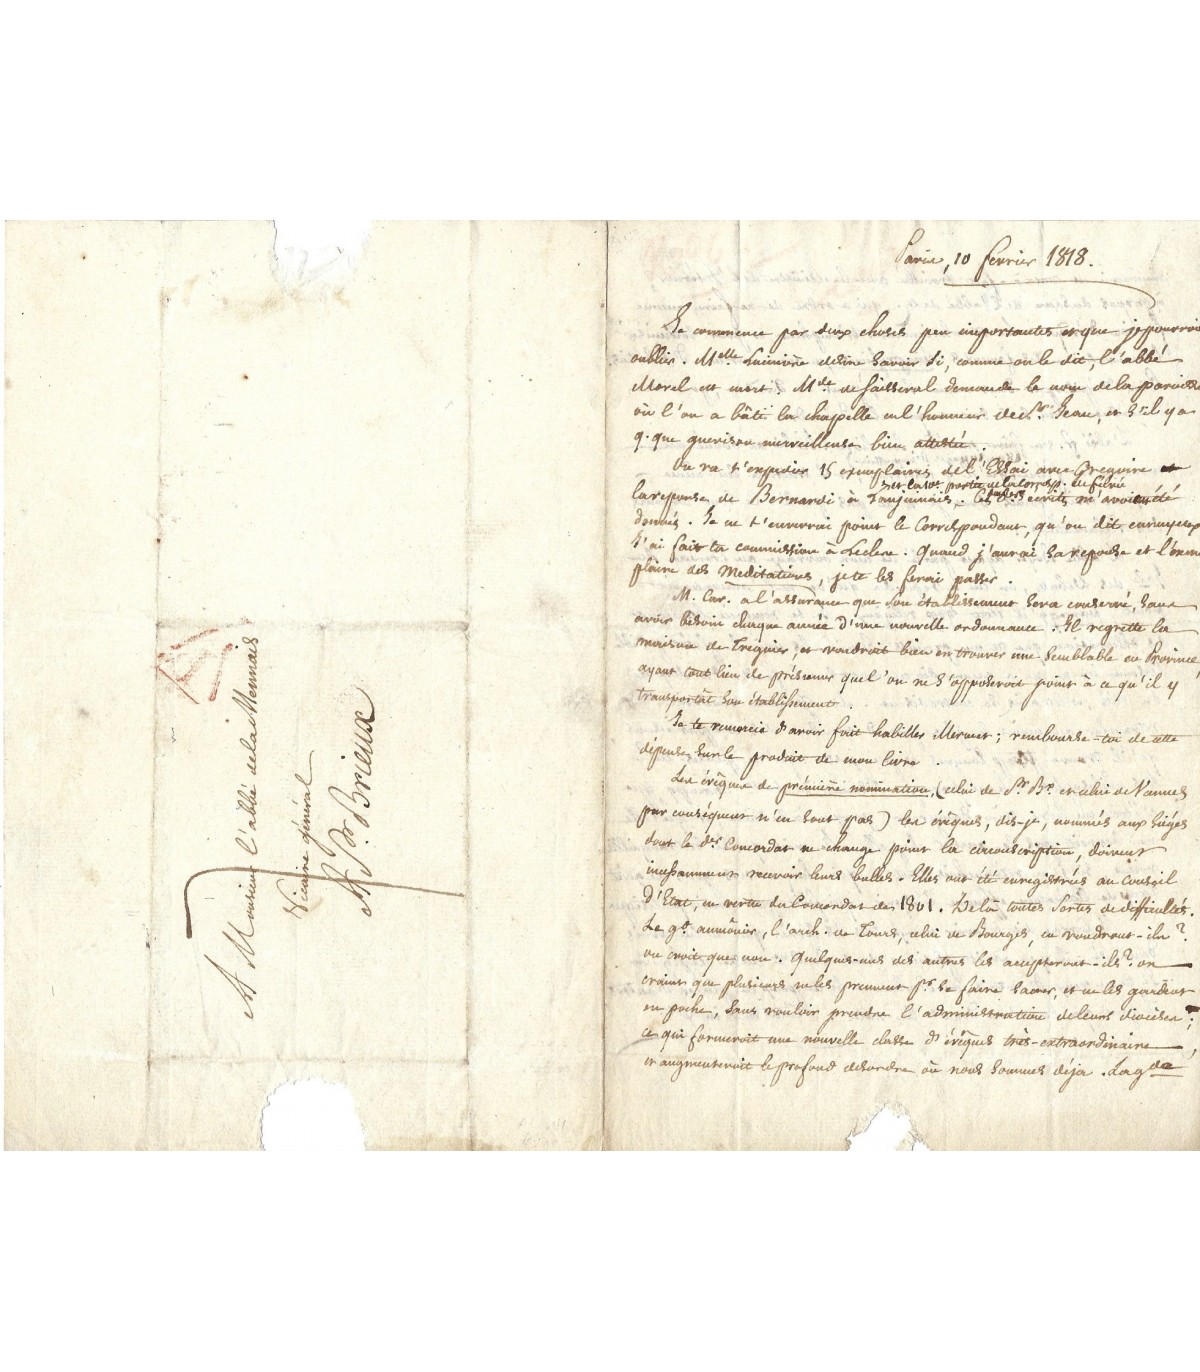 A Monsieur l'abbé de la Mennais
Vicaire général
A St. Brieux
Paris, 10 février 1818.
Je commence par deux choses peu importantes et que je pourrois
oublier. Melle Luinière desire savoir si, comme on le dit, l'abbé
Morel est mort. Mde de demande le nom de la paroisse
où l'on a bâti la chapelle en l'honneur de St. Jean, et s'il y a
q.que guerison merveilleuse bien attestée.
On va t'expédier 15 exemplaires de l'Essai avec Gregoire et
et la 1re partie de la corresp. de
la reponse de Bernardi à Lanjuinais. Ces écrits m'avoient été
donnés. Je ne t'enverrai point le Correspondant, qu'on dit ennuyeux
J'ai fait ta commission à Leclere. Quand j'aurai sa reponse et l'exem
plaire des Meditations, je te les ferai passer.
M. Car. a l'assurance que son établissement sera conservé, sans
avoir besoin chaque année d'une nouvelle ordonnance. Il regrette la
maison de Treguier, et voudroit bien en trouver une semblable en Province
ayant tout lieu de présumer que l'on ne s'opposeroit point à ce qu'il y
transportât son établissement.
Je te remercie d'avoir fait habiller Mermet; rembourse-toi de cette
dépense sur le produit de mon livre.
Les évêques de première nomination, (celui de St. Br. et celui de Vannes
par conséquent n'en sont pas) les évêques, dis-je, nommés aux sièges
dont le der Concordat ne change point la circonscription, doivent
incessamment recevoir leurs bulles. Elles ont été enregistrées au Conseil
d'Etat, en vertu du Concordat de 1801. De là toutes sortes de difficultés.
Le gd aumônier, l'arch. de Tours, celui de Bourges, en voudront-ils?
on croit que non. Quelques-uns des autres les accepteront-ils? on
craint que plusieurs ne les prennent pr se faire sacrer, et ne les gardent
en poche, sans vouloir prendre l'administration de leurs diocèses;
ce qui formeroit une nouvelle classe d'évêques très-extraordinaire,
et augmenteroit le profond desordre où nous sommes déja. La gde